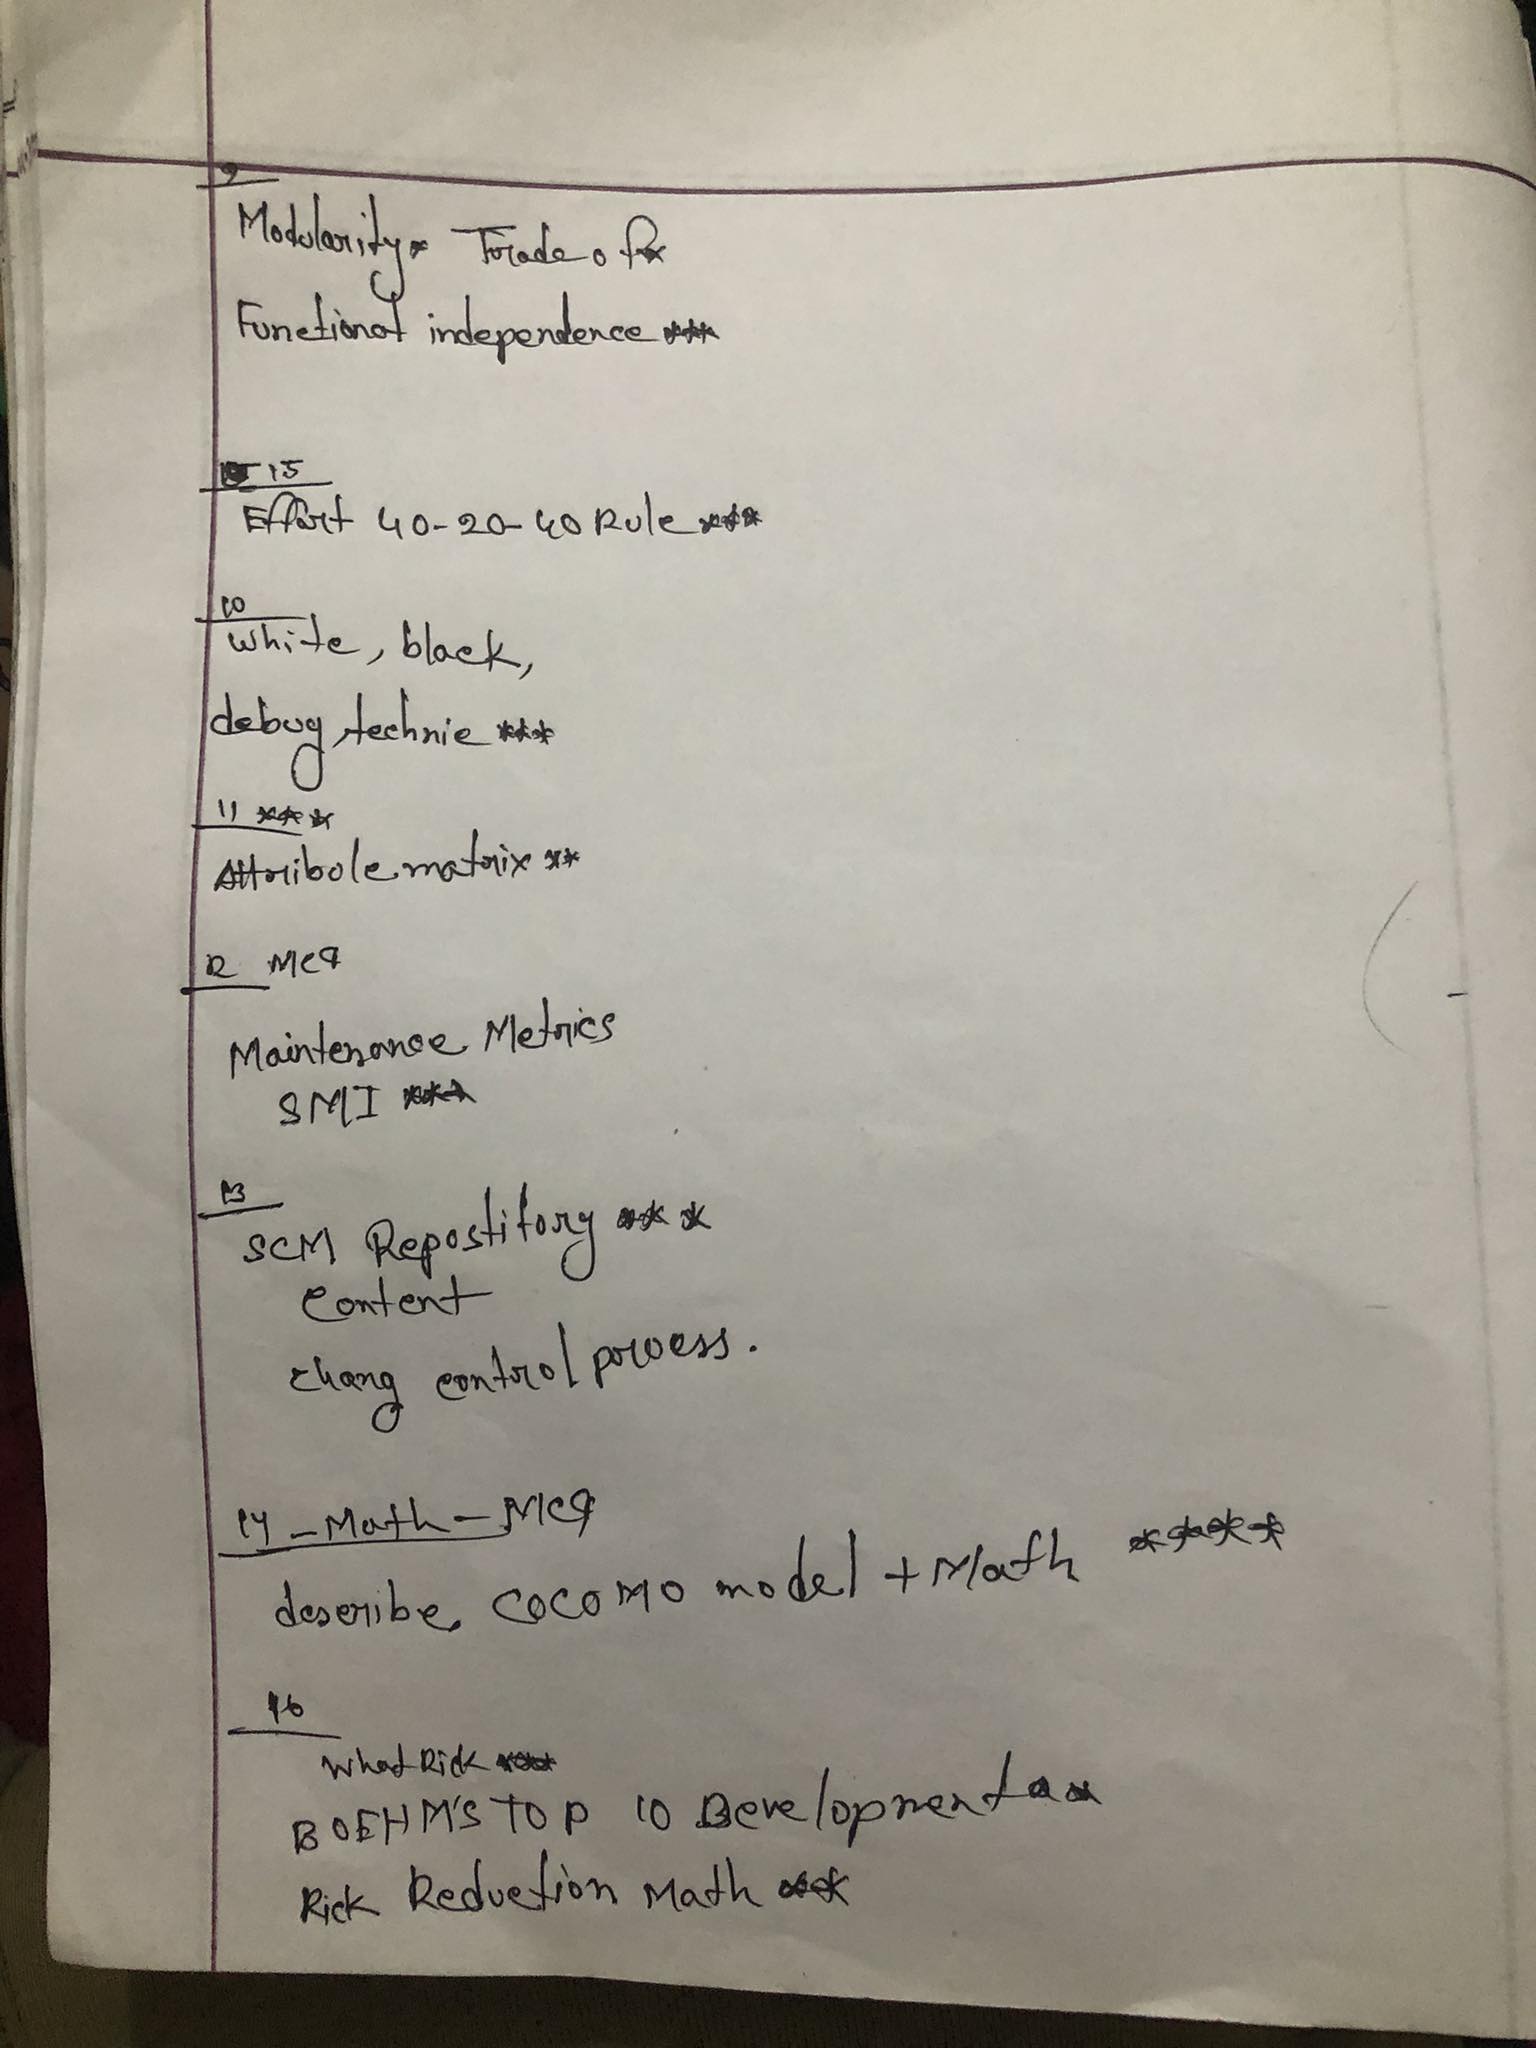 9
Modularity* Trade of*
Functional independence ***
15
Effort 40-20-40 Rule ***
10
White, black,
debug, technie ***
11 ***
Attribole matrix **
12 MCQ
Maintenance Metrics
SMI ***
13
SCM Repostitory ***
Content
Chang control process.
14 - Math - MCQ
describe COCOMO model + Math ****
16
What Rick ***
BOEHM'S TOP 10 Development **
Rick Reduction Math ***